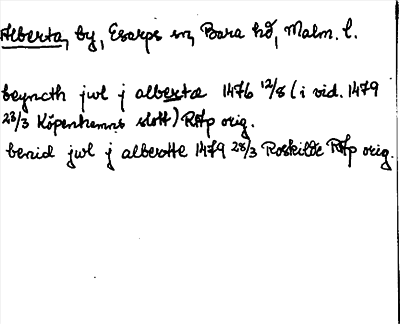 Alberta, by, Esarps sn, Bara hd, Malm. l.
beyncth jwl j alberta 1476 12/8 (i vid. 1479
23/3 Köpenhamns slott) RAp orig.
benid jwl j alberotte 1479 23/3 Roskilde RAp orig.